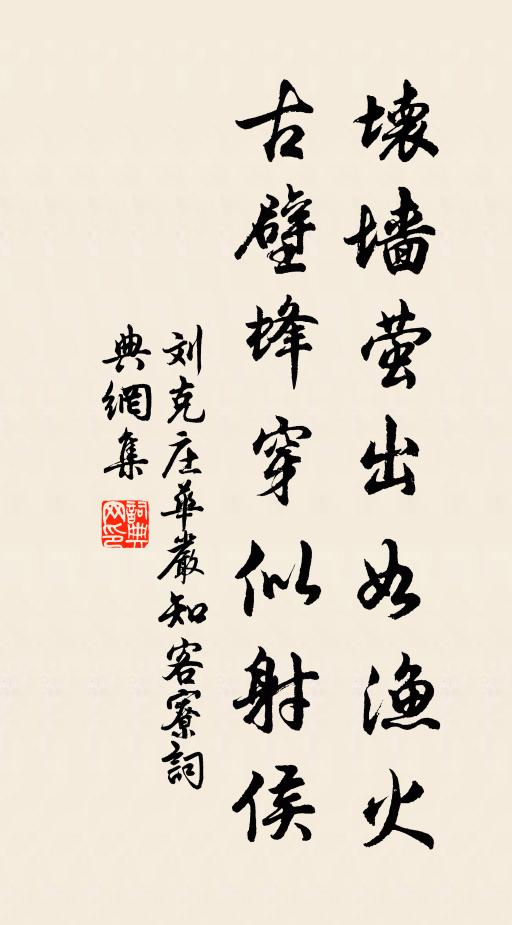 壊墙萤出如漁火
古壁蜂穿似射侯
刘克庄華嚴知客寮詞
典網集
詞典网印